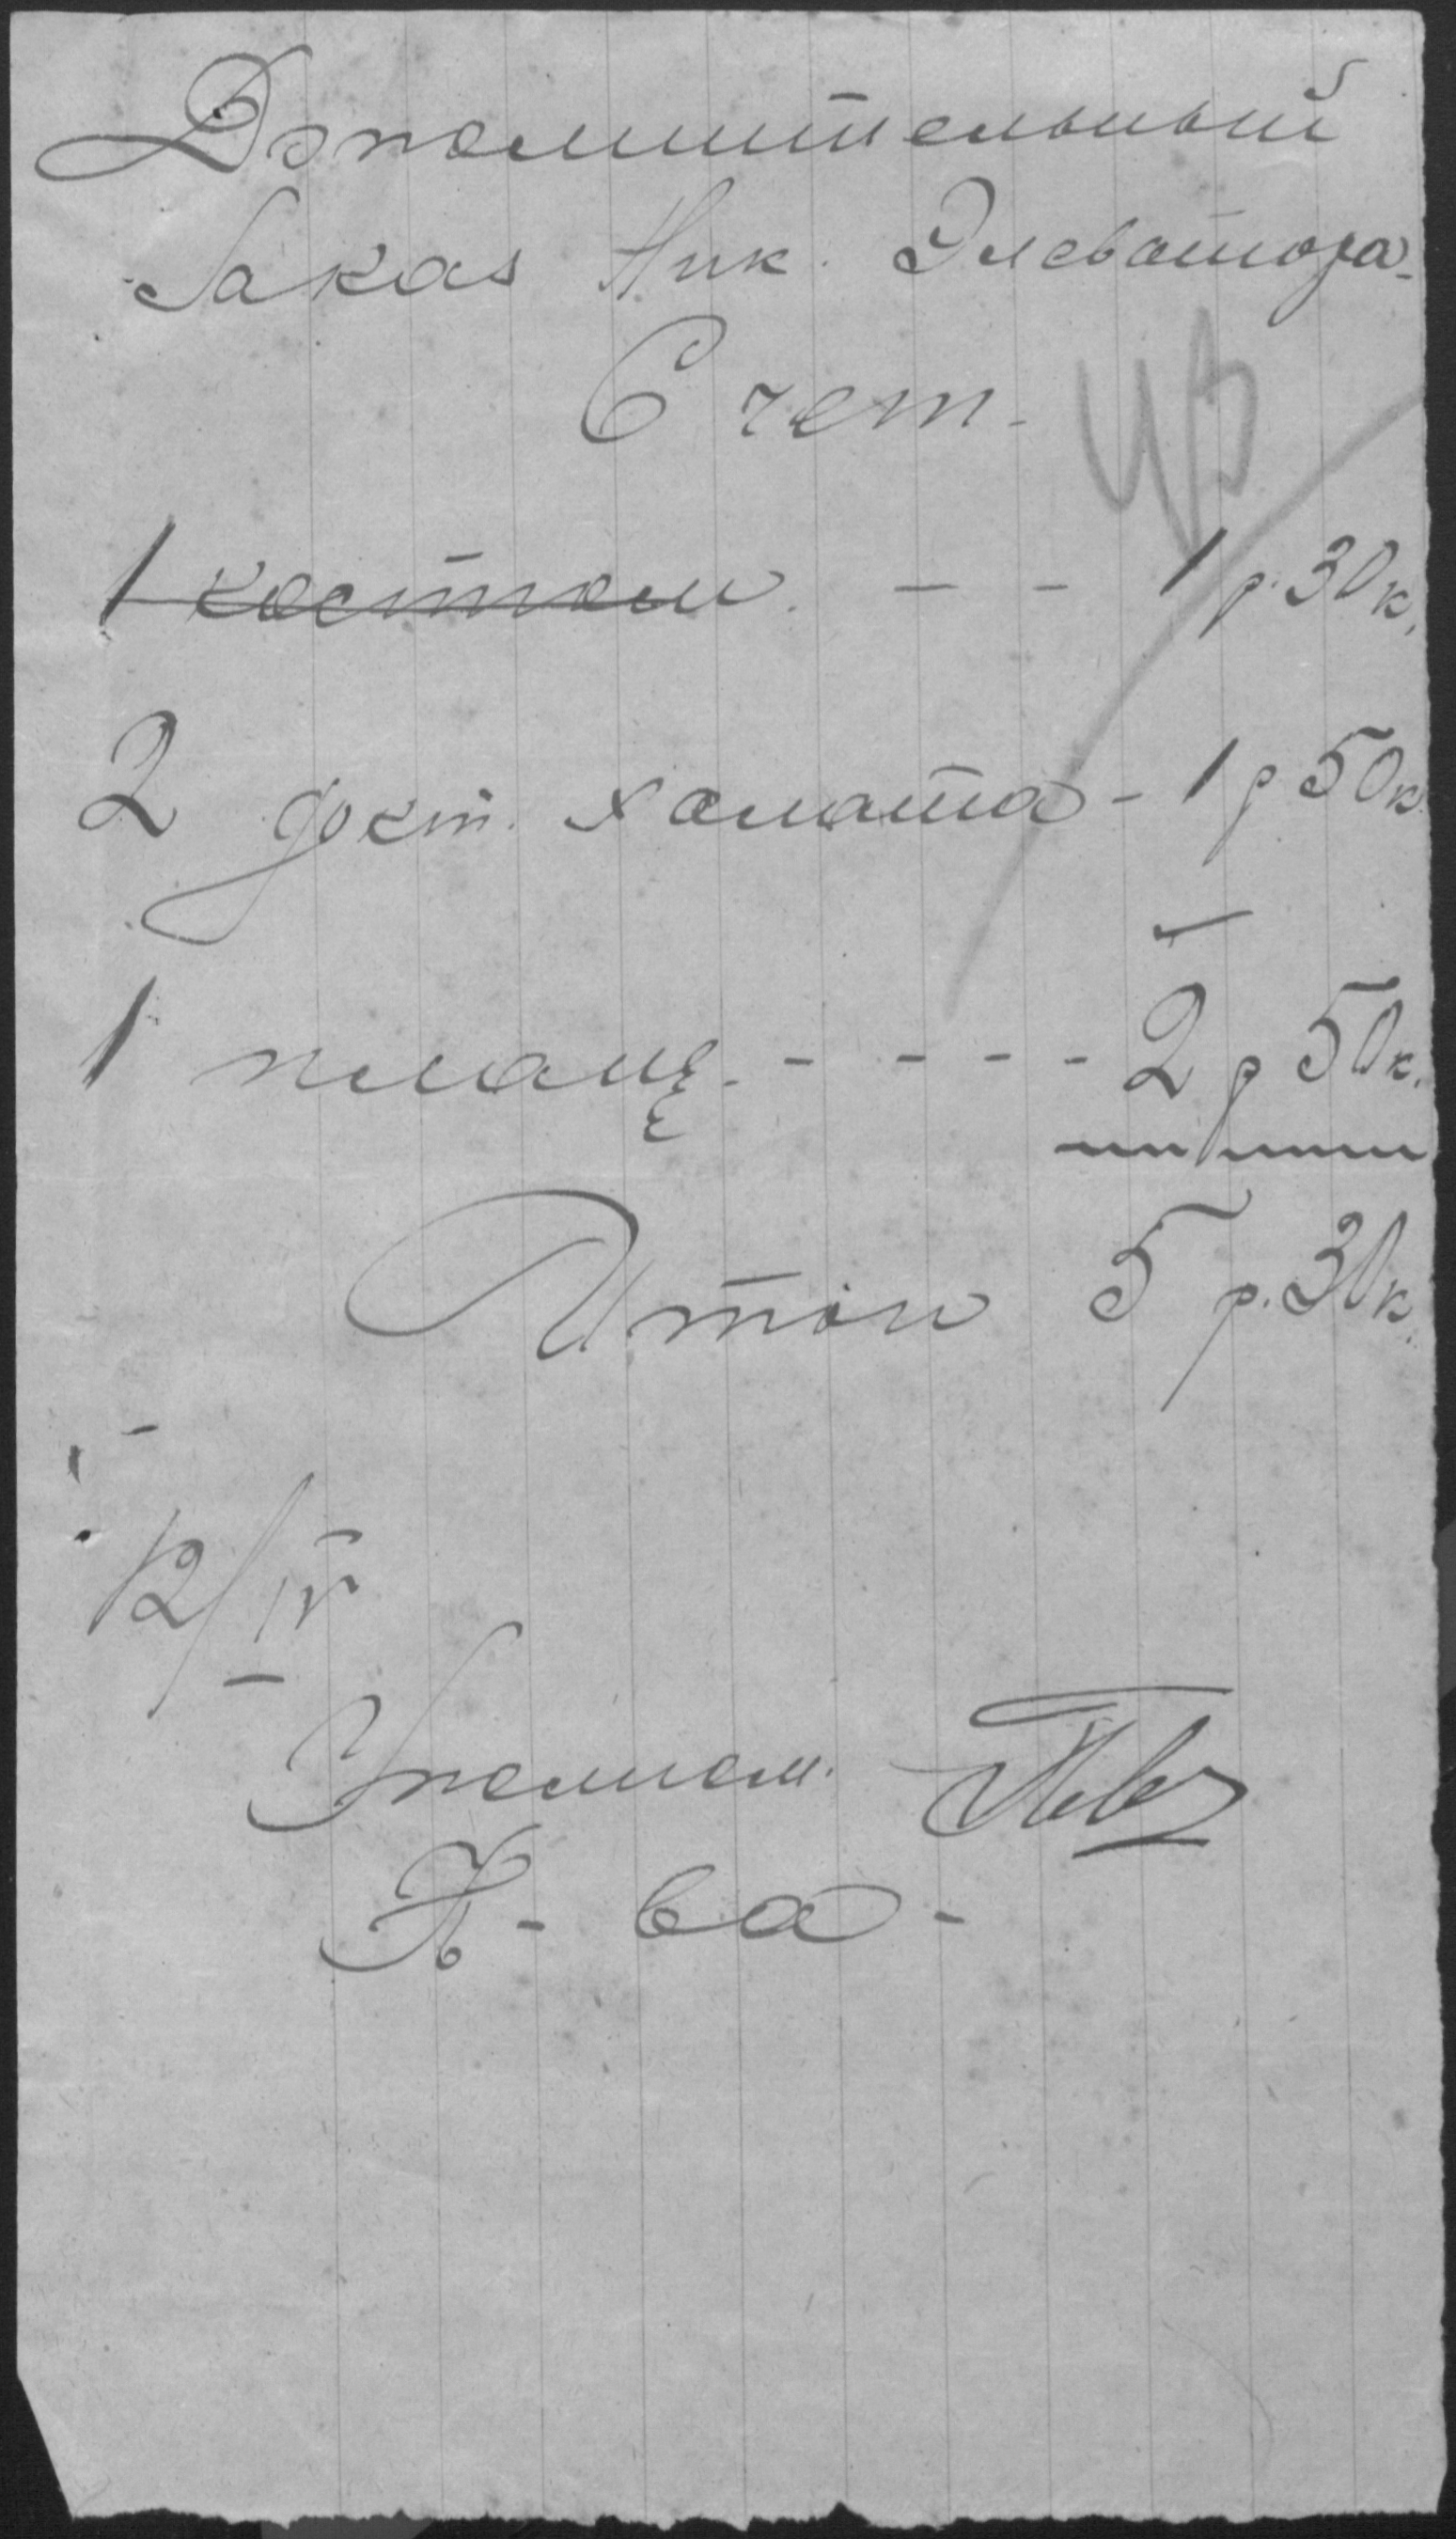 Дополнительный
Заказ Ник. Элеватора
Счет.
1 костюм. - - 1 р. 30 к.
2 докт. халата - 1 р 50 к
1 плащ. - - - - 2 р 50 к.
Итого 5 р. 30 к.
12/IV
Уполном.
К-ва -